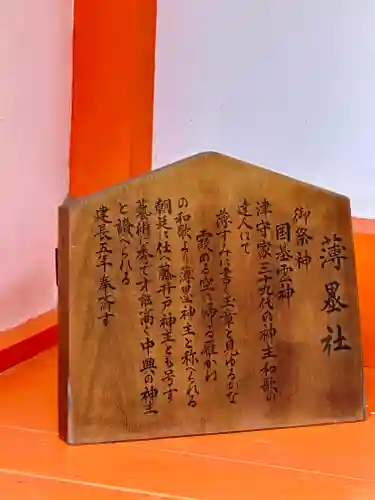 薄墨社
御祭神
国基霊神
津守家三九代の神主和歌の
達人にて
薄すみに書く玉章と見ゆるかな
霞める空に帰る雁かね
の和歌より薄墨神主と称へられる
朝廷に仕へ藤井戸神主とも号す
藝術に秀で才能高く中興の神主
と讃へられる
建長五年奉斎す